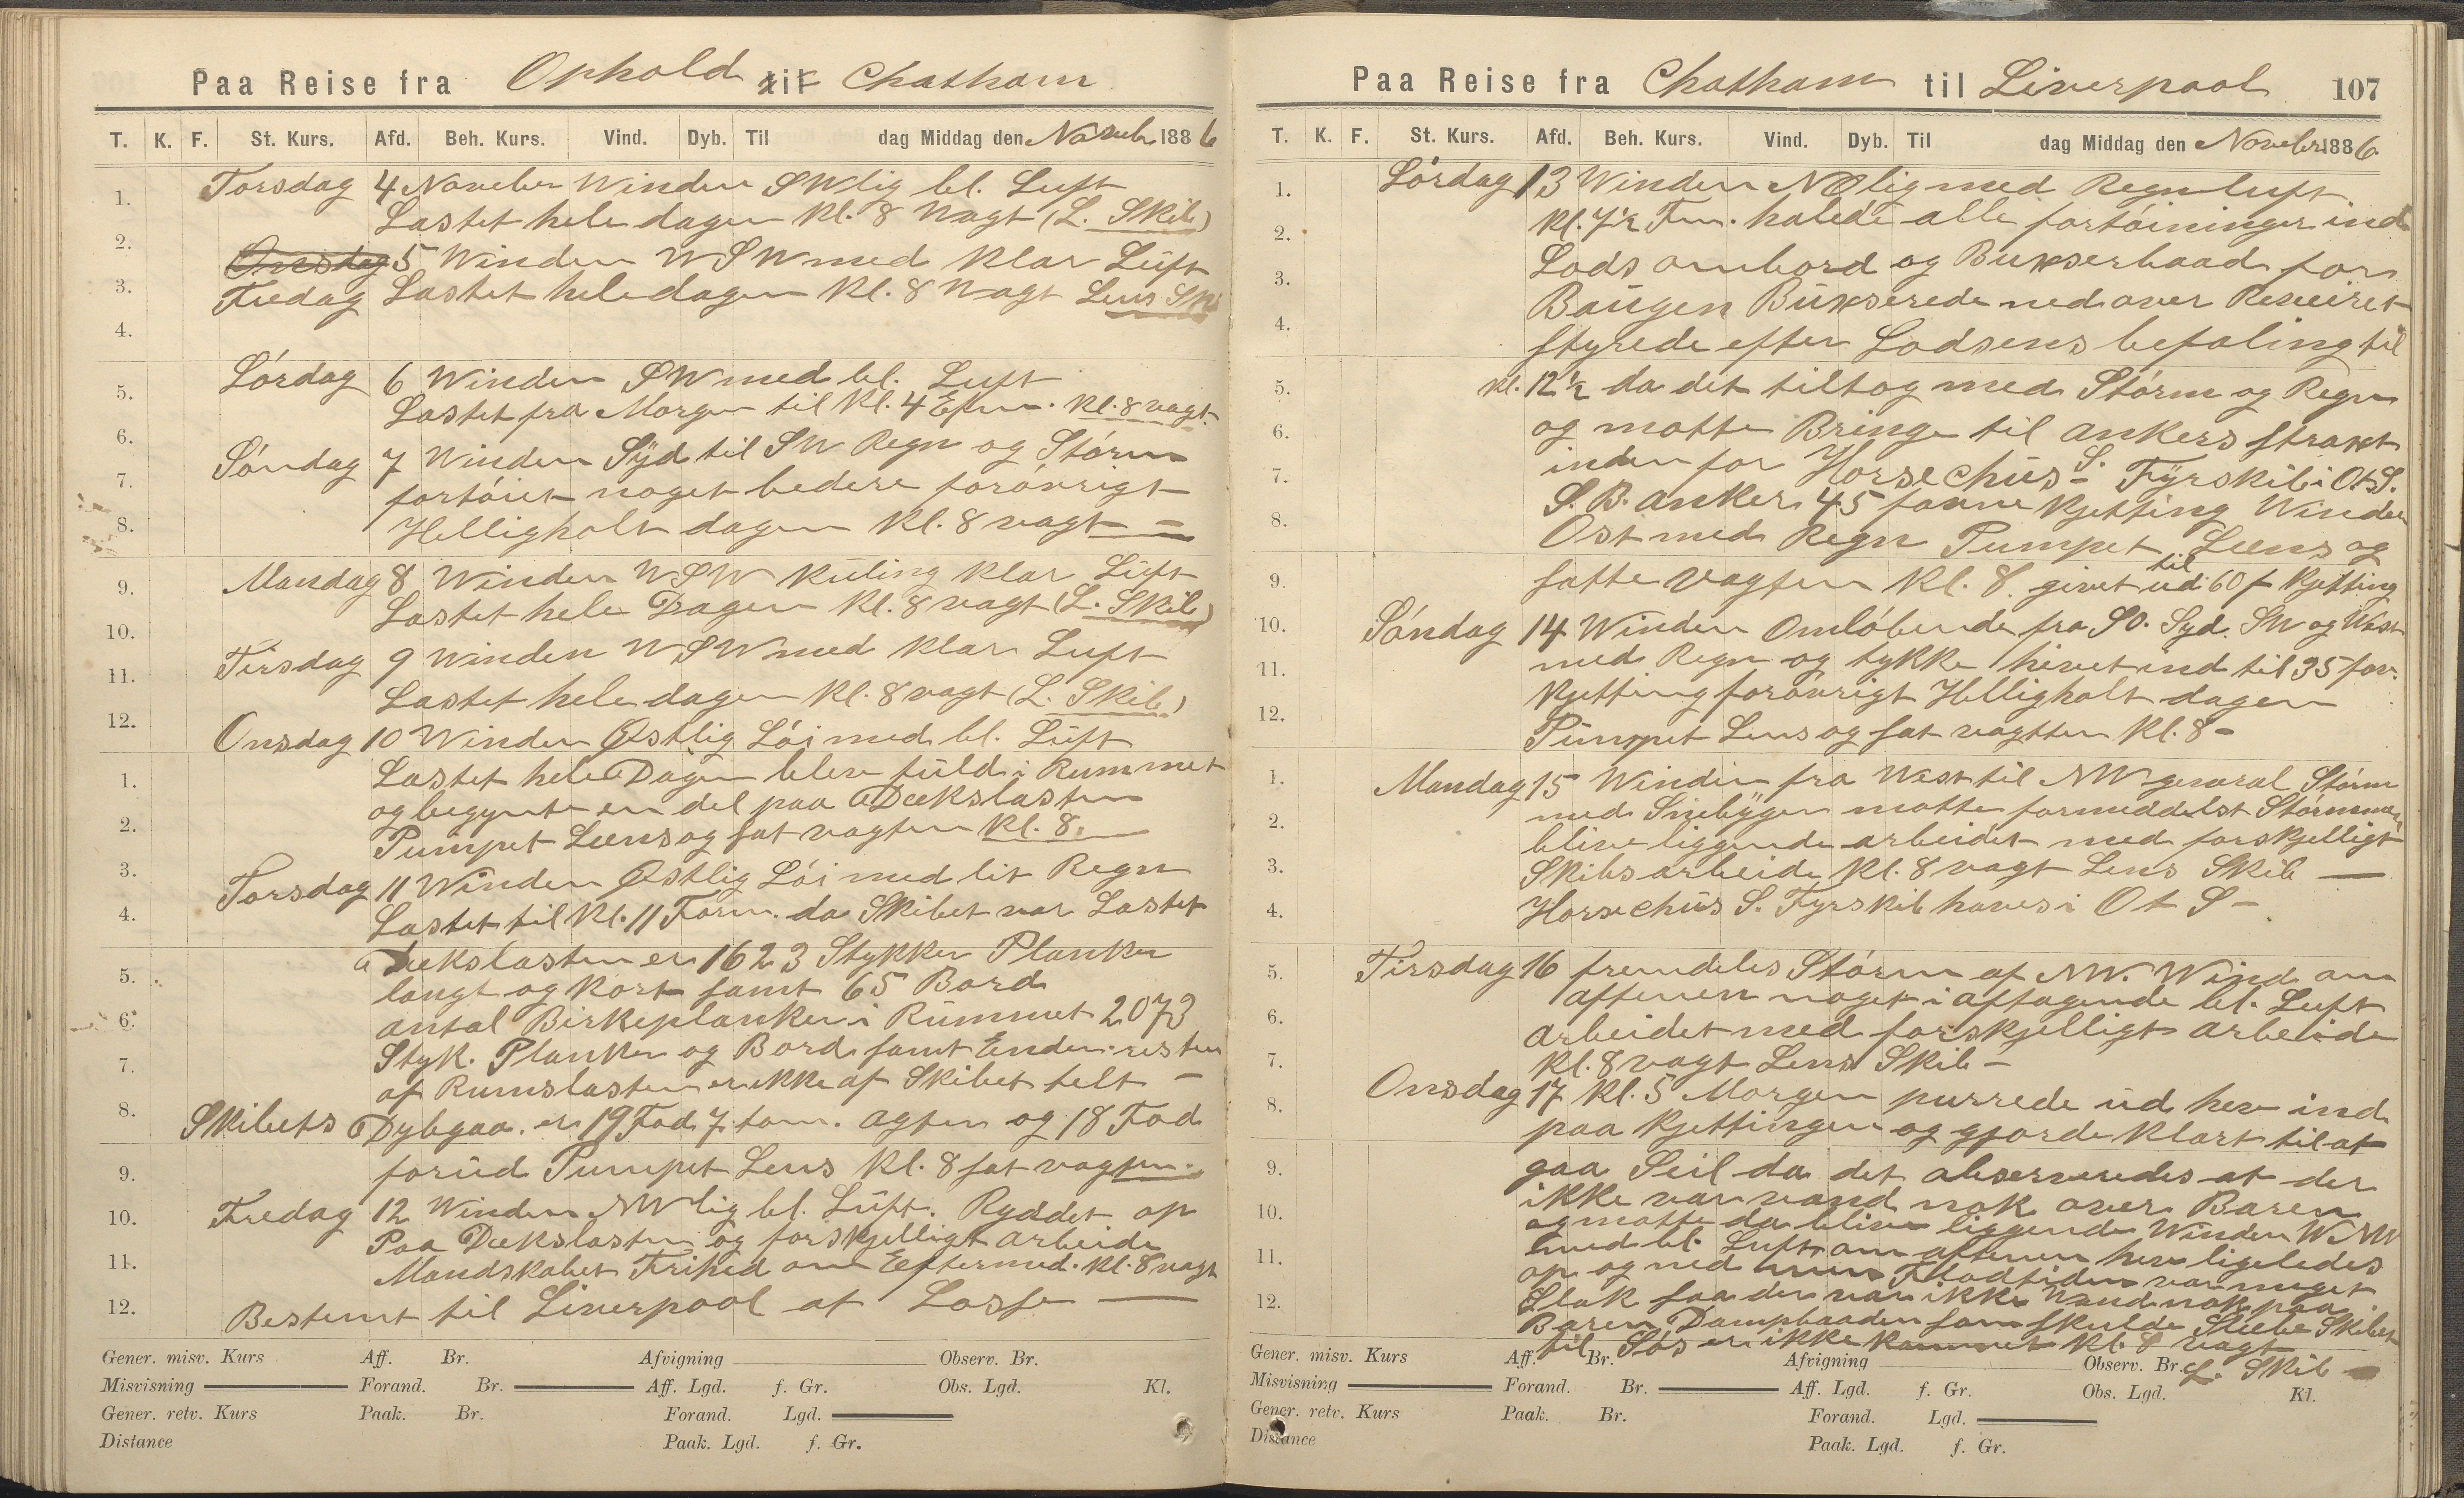 Paa Reise fra Ophold til Chatham
T. K. F. St. Kurs. Afd. Beh. Kurs. Vind. Dyb. Til dag Middag den Novembr 1886
Torsdag 4 November Winden SWlig bl. Luft
Lastet hele dagen Kl. 8 Vagt (L. Skib)
Onsdag 5 Winden WSW med Klar Luft
Fredag Lastet hele dagen Kl. 8 Vagt Lens Sk
Lórdag 6 Winden SW med bl. Luft
Lastet fra Morgen til Kl. 4 Efm. Kl. 8 vagt
Sóndag 7 Winden Syd til SW Regn og Stórm
fortóiet noget bedere foróvrigt
Helligholt dagen Kl. 8 vagt =
Mandag 8 Winden WSW Kuling Klar Luft
Lastet hele Dagen Kl. 8 vagt (L. Skib)
Tirsdag 9 Winden WSW med Klar Luft
Lastet hele dagen Kl. 8 vagt (L. Skib)
Onsdag 10 Winden Østlig Lói med bl. Luft
Lastet hele Dagen blev fuld i Rummet
og begynte en del paa Dækslasten
Pumpet Læns og sat vagten Kl. 8.
Torsdag 11 Winden Østlig Lói med lit Regn
Lastet til Kl. 11 Form. da Skibet var Lastet
Dækslasten er 1623 Stykker Planker
langt og Kort samt 65 Bord
antal Birkeplanker i Rummet 2073
Styk. Planker og Bord samt Ender resten
af Rumslasten er ikke af Skibet telt -
Skibets Dybgaa. er 19 Fod 7 tom. agter og 18 Fod
forud Pumpet Lens Kl. 8 sat vagten.
Fredag 12 Winden NWlig bl. Luft. Ryddet op
Paa Dækslasten og forskjelligt arbeide
Mandskabet Frihed om Eftermed. Kl. 8 vagt
Bestemt til Liverpool at Losse
1. 2. 3. 4. 5. 6. 7. 8. 9. 10. 11. 12.
1. 2. 3. 4. 5. 6. 7. 8. 9. 10. 11. 12.
Gener. misv. Kurs Aff. Br. Afvigning Observ. Br.
Misvisning Forand. Br. Aff. Lgd. f. Gr. Obs. Lgd. Kl.
Gener. retv. Kurs Paak. Br. Forand. Lgd.
Distance Paak. Lgd. f. Gr.
Paa Reise fra Chatham til Liverpool 107
T. K. F. St. Kurs. Afd. Beh. Kurs. Vind. Dyb. Til dag Middag den Novebr 1886
Lórdag 13 Winden NOlig med Regnluft
Kl. 7½ Fm. halede alle fortóininger ind
Lods ombord og Bukserbaad for
Baugen Bukserede ned over Reveiret
styrede efter Lodsens befaling til
Kl. 12½ da det tiltog med Stórm og Regn
og motte Bringe til ankers strakt
inden for Horsechus S. Fyrskib i OtS.
S. B. anker 45 favne Kjetting Winden
Ost med Regn Pumpet Læns og
satte Vagten Kl. 8. givet ud til 60 f Kjetting
Sóndag 14 Winden Omlóbende fra SO. Syd. SW og West
med Regn og tykke hivet ind til 35 fav.
Kjetting foróvrigt Helligholt dagen
Pumpet Lens og sat vagtten Kl. 8 -
Mandag 15 Winden fra West til NW general Stórm
med Snebyger motte formeddelst Stórmen
blive liggende arbeidet med forskjelligt
Skibsarbeide Kl. 8 vagt Lens Skib
Horsechus S. Fyrskib haves i Ot S -
Tirsdag 16 fremdeles Stórm af NW. Wind om
aftenen noget i aftagende bl. Luft
arbeidet med forskjelligt arbeide
Kl. 8 vagt Lens Skib -
Onsdag 17 Kl. 5 Morgen purrede ud hev ind
paa Kjettingen og gjorde Klart til at
gaa Seil da det observeredes at der
ikke var vand nok over Baren
og motte da blive liggende Winden WNW
med bl. Luft om aftenen hev ligeledes
op og ned Flodtiden var meget
Slak saa der var ikke Vand nok paa
Baren Dampbaaden som skulde Slæbe Skibet
til Sós er ikke Kommet Kl. 8 vagt
L. Skib
1. 2. 3. 4. 5. 6. 7. 8. 9. 10. 11. 12.
1. 2. 3. 4. 5. 6. 7. 8. 9. 10. 11. 12.
Gener. misv. Kurs Aff. Br. Afvigning Observ. Br.
Misvisning Forand. Br. Aff. Lgd. f. Gr. Obs. Lgd. Kl.
Gener. retv. Kurs Paak. Br. Forand. Lgd.
Distance Paak. Lgd. f. Gr.